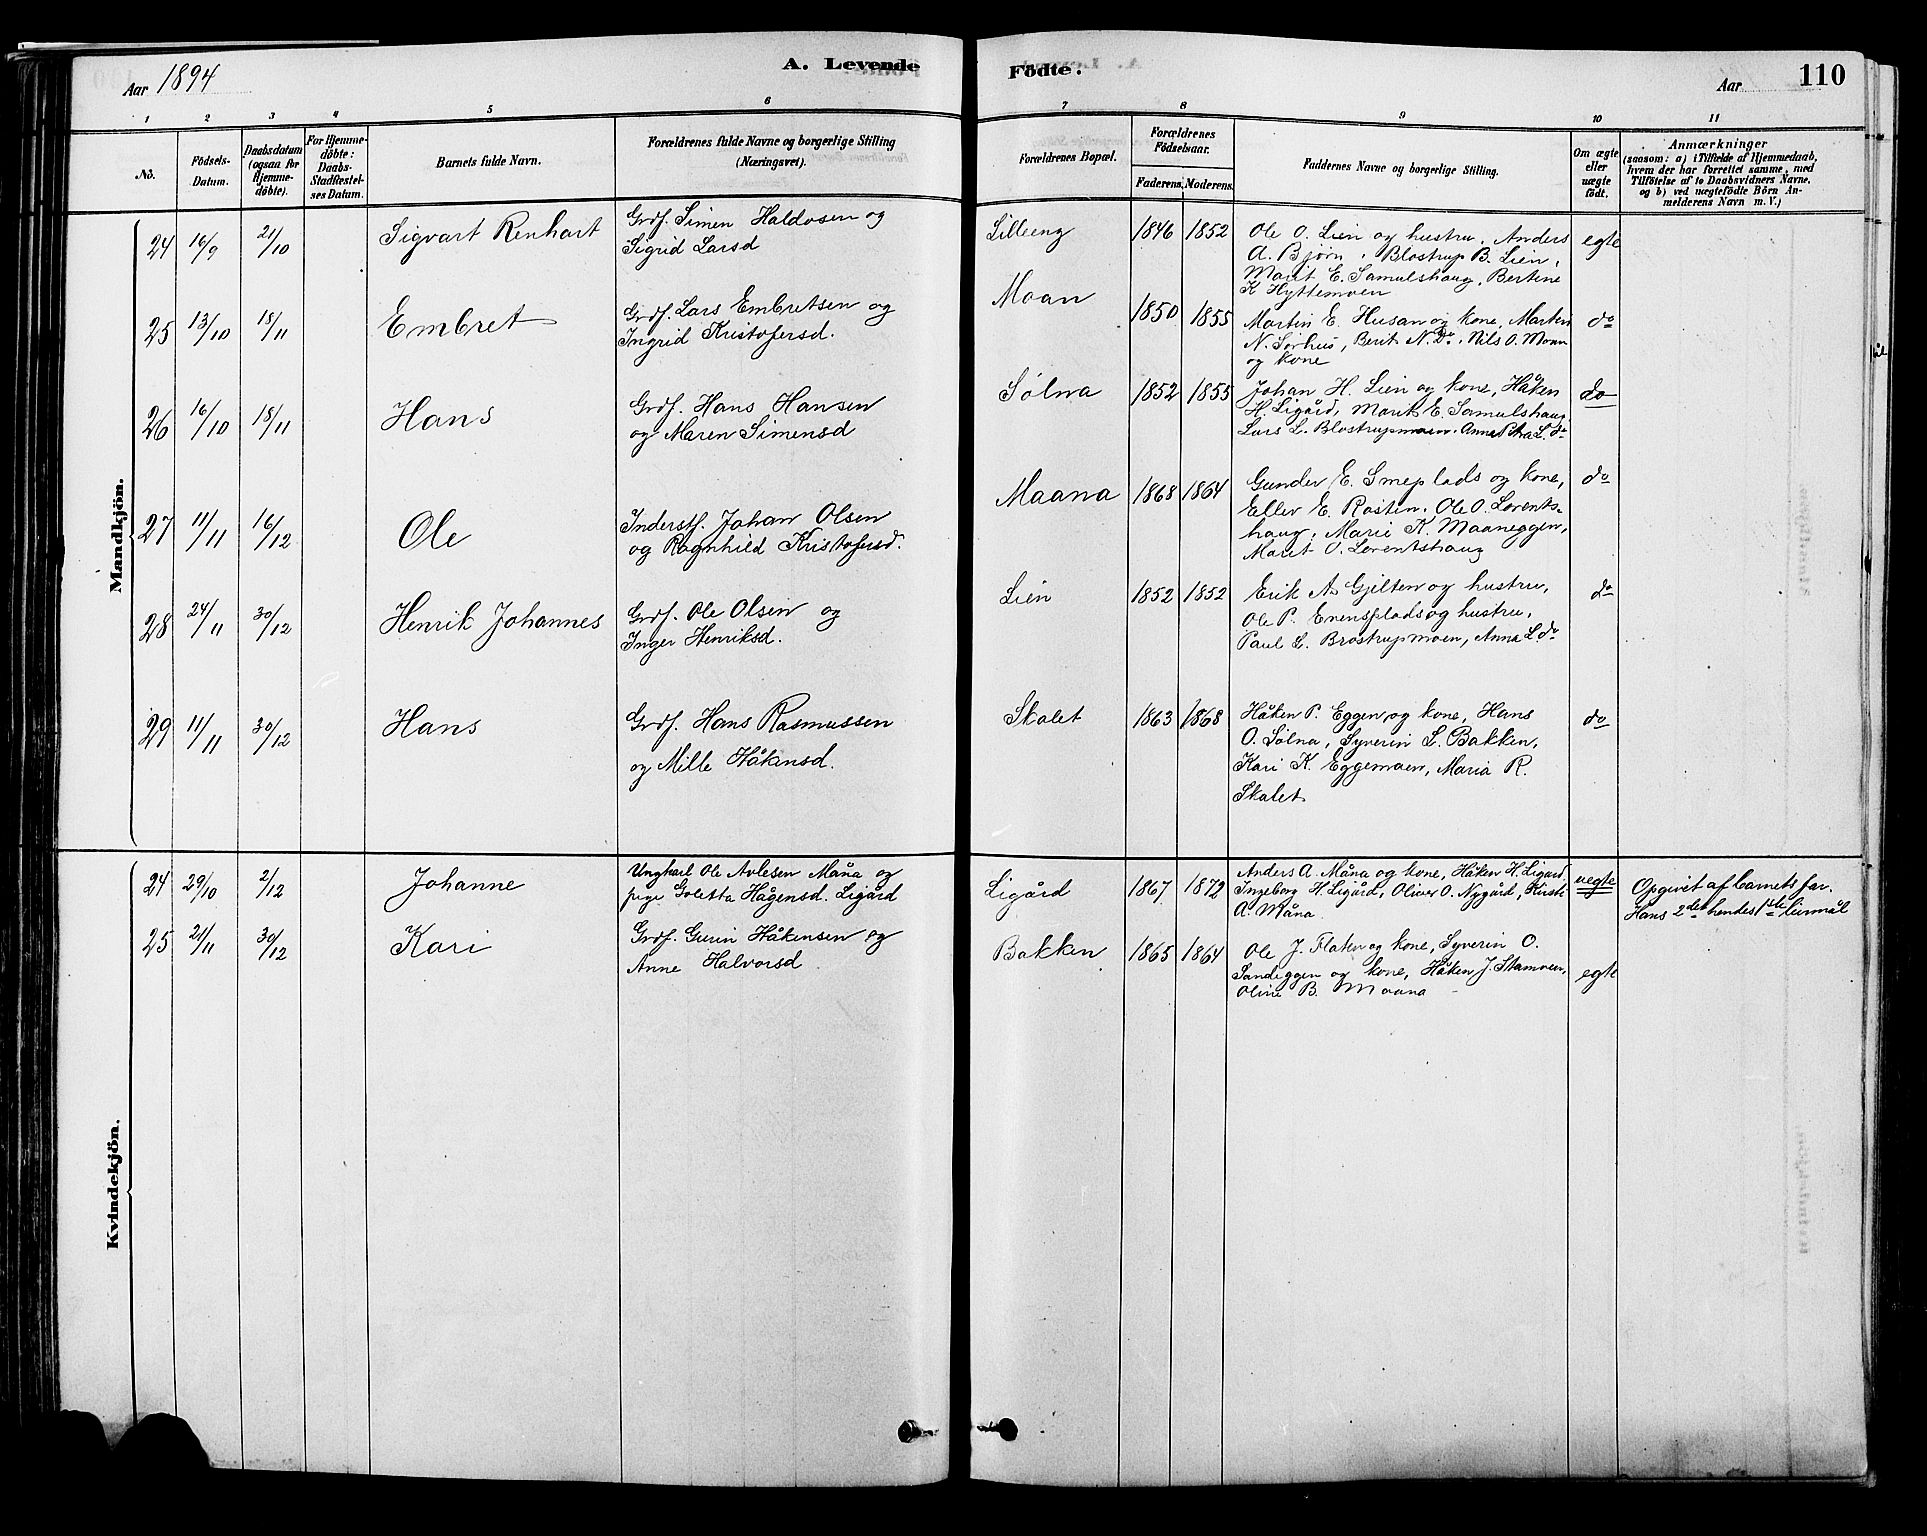 Aar 1894
A. Levende Födte.
Aar
110
1 2 3 4 5 6 7 8 9 10 11
No.
Födsels-Datum.
Daabsdatum (ogsaa for Hjemme-döbte).
For Hjemme-döbte: Daabs-Stadfæstel-ses Datum.
Barnets fulde Navn.
Forældrenes fulde Navne og borgerlige Stilling (Næringsvei).
Forældrenes Bopæl.
Forældrenes Födselsaar.
Faderens. Moderens.
Faddernes Navne og borgerlige Stilling.
Om ægte eller uægte födt.
Anmærkninger
(saasom: a) i Tilfælde af Hjemmedaab, hvem der har forrettet samme, med Tilföielse af to Daabsvidners Navne, og b) ved uægtefödte Börn Anmelderens Navn m. V.)
Mandkjön.
24 16/9 21/10 Sigvart Renhart
Grdf. Simen Haldosen og
Sigrid Larsd
Lilleeng 1846 1852
Ole O. Lien og hustru, Anders
A. Bjørn, Blostrup B. Lien,
Marit E. Samulshaug, Bertine
K Hyttemoen
egte
25 13/10 18/11 Embret
Grdf. Lars Embretsen og
Ingrid Kristofersd.
Moan 1850 1855
Martin E. Husan og kone, Morten
N. Sørhus, Berit N. Do, Nils O. Moan
og kone
do
26 16/10 18/11 Hans
Grdf. Hans Hansen
og Maren Simensd
Sølna 1852 1855
Johan H. Lien og kone, Håken
H. Ligård, Marit E. Samulshaug
Lars L. Blostrupmoen, Anne Petra L. do
do
27 11/11 16/12 Ole
Inderstf. Johan Olsen
og Ragnhild Kristofersd.
Maana 1868 1864
Gunder E. Smeplads og kone,
Ellev E. Rosten, Ole O. Lorents-
haug, Marie K. Maaneggen,
Marit O. Lorentshaug
do
28 24/11 30/12 Henrik Johannes
Grdf. Ole Olsen og
Inger Henriksd.
Lien 1852 1852
Erik A. Gjelten og hustru,
Ole P. Enensplads og hustru,
Paul L. Brostrupmoen, Anna L. do
do
29 11/11 30/12 Hans
Grdf. Hans Rasmussen
og Mille Håkensd.
Skalet 1863 1868
Håken P. Eggen og kone, Hans
O. Sølna, Syverin L. Bakken,
Kari K. Eggemoen, Maria R.
Skalet
do
Kvindekjön.
24 29/10 2/12 Johanne
Ungkarl Ole Avlesen Måna og
pige Goletta Hågensd. Ligård
Ligård 1867 1872
Anders A. Måna og kone, Håken H. Ligård,
Ingeborg H. Ligård, Oliver O. Nygård, Kirsti
A. Måna
uegte
Opgivet af barnets far.
Hans 2det hendes 1ste leiermål
25 21/11 30/12 Kari
Grdf. Gurin Håkensen og
Anne Halvorsd
Bakken 1865 1864
Ole J. Flaten og kone, Syverin O.
Sandeggen og kone, Håken J. Stamoen,
Oline B. Moana
egte